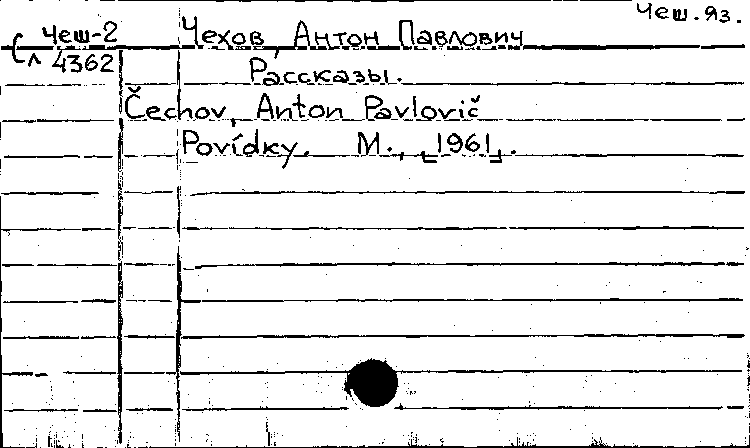 Чеш.яз.
Чеш-2
л 4362
Чехов, Антон Павлович
Рассказы.
Čechov, Anton Pavlovič
Povídky. М., [1961].